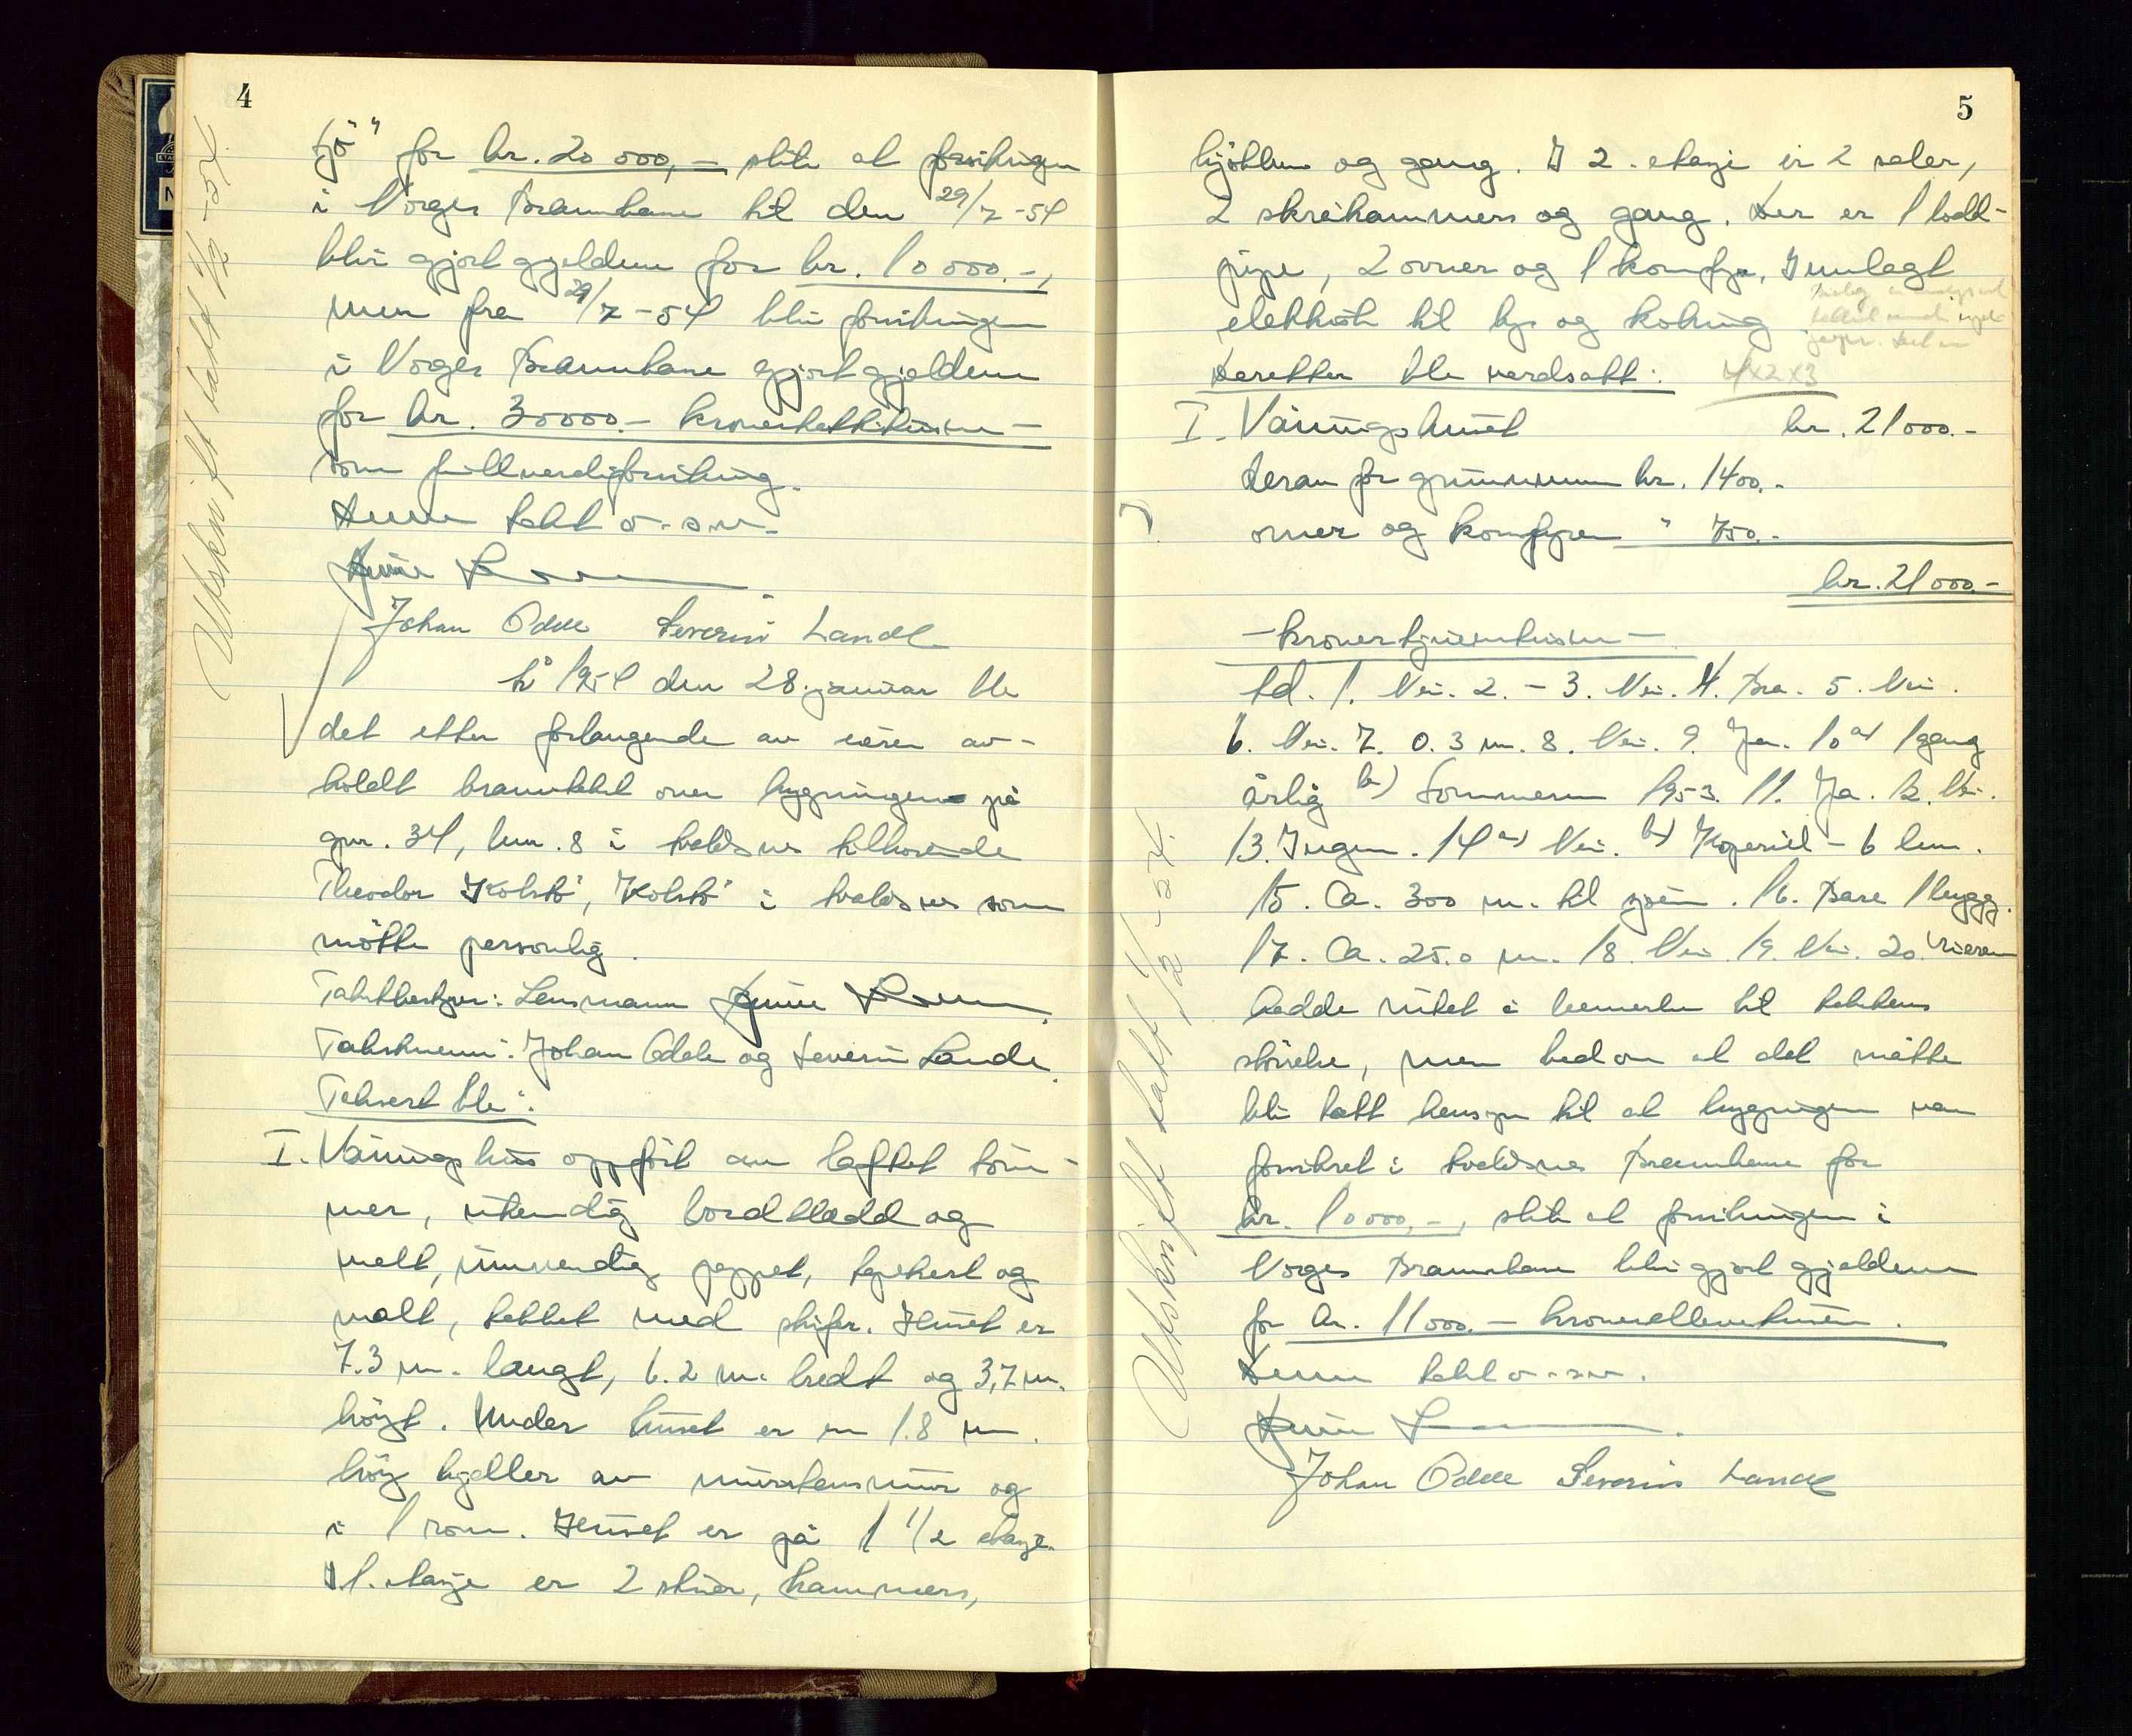 4
sjö" for kr. 20 000,- slik at forsikringen
i Norges Brannkasse til den 29/7-54
blir gjort gjeldene for kr. 10 000.-,
men fra 29/7-54 blir forsikringen
i Norges Brannkasse gjort gjeldene
for kr. 30000.- kronertrettitusen -
som fullverdiforsikring.
Denne takst o.s.v.
Johan Odde Severin Lande
År 1954 den 28. januar ble
det etter forlangende av eieren av-
holdt branntakst over bygningene på
gnr. 34, bnr. 8 i Avaldsnes tilhörende
Theodor Kolstö, "Kolstö" i Avaldsnes som
mötte personlig.
Takstbestyrer: Lensmann
Takstmenn: Johan Odde og Severin Lande.
Taksert ble:
I. Våningshus oppfört av laftet töm-
mer, utvendig bordkledd og
malt, innvendig pappet, tapetsert og
malt, tekket med skifer. Huset er
7.3 m. langt, 6.2 m. bredt og 3,7 m.
höyt. Under huset er en 1.8 m.
höy kjeller av murstensmur og
i 1 rom. Huset er på 1 1/2 etasje.
I 1. etasje er 2 stuer, kammers,
Utskrift tatt 1/2-54.
5
kjökken og gang. I 2. etasje er 2 saler,
2 skråkammers og gang. Der er 1 todd-
pipe, 2 ovner og 1 komfyr. Innlagt
elektrisk til lys og koking
Deretter ble verdsatt: 4x2x3
I. Våningshuset kr. 21000.-
derav for grunnmuren kr. 1400.-
ovner og komfyren " 750.-
kr. 21000.-
- kronertjueentusen -
Ad. 1. Nei. 2. - 3. Nei. 4. Bra. 5. Nei.
6. Nei. 7. 0.3 m. 8. Nei. 9. Ja. 10 a) 1 gang
årlig b) Sommeren 1953. 11. Ja. 12. Nei.
13. Ingen. 14 a) Nei. b) Kopervik - 6 km.
15. Ca. 300 m. til sjöen. 16. Bare 1 bygg.
17. Ca. 25.0 m. 18. Nei 19. Nei. 20. Eieren
hadde intet å bemerke til takstens
störrelse, men bad om at det måtte
bli tatt hensyn til at bygningen var
forsikret i Avaldsnes Brannkasse for
kr. 10000,-, slik at forsikringen i
Norges Brannkasse blir gjort gjeldene
for kr. 11000.- kronerellevetusen.
Denne takst o.s.v.
Johan Odde Severin Lande
Utskrift tatt 1/2-54.